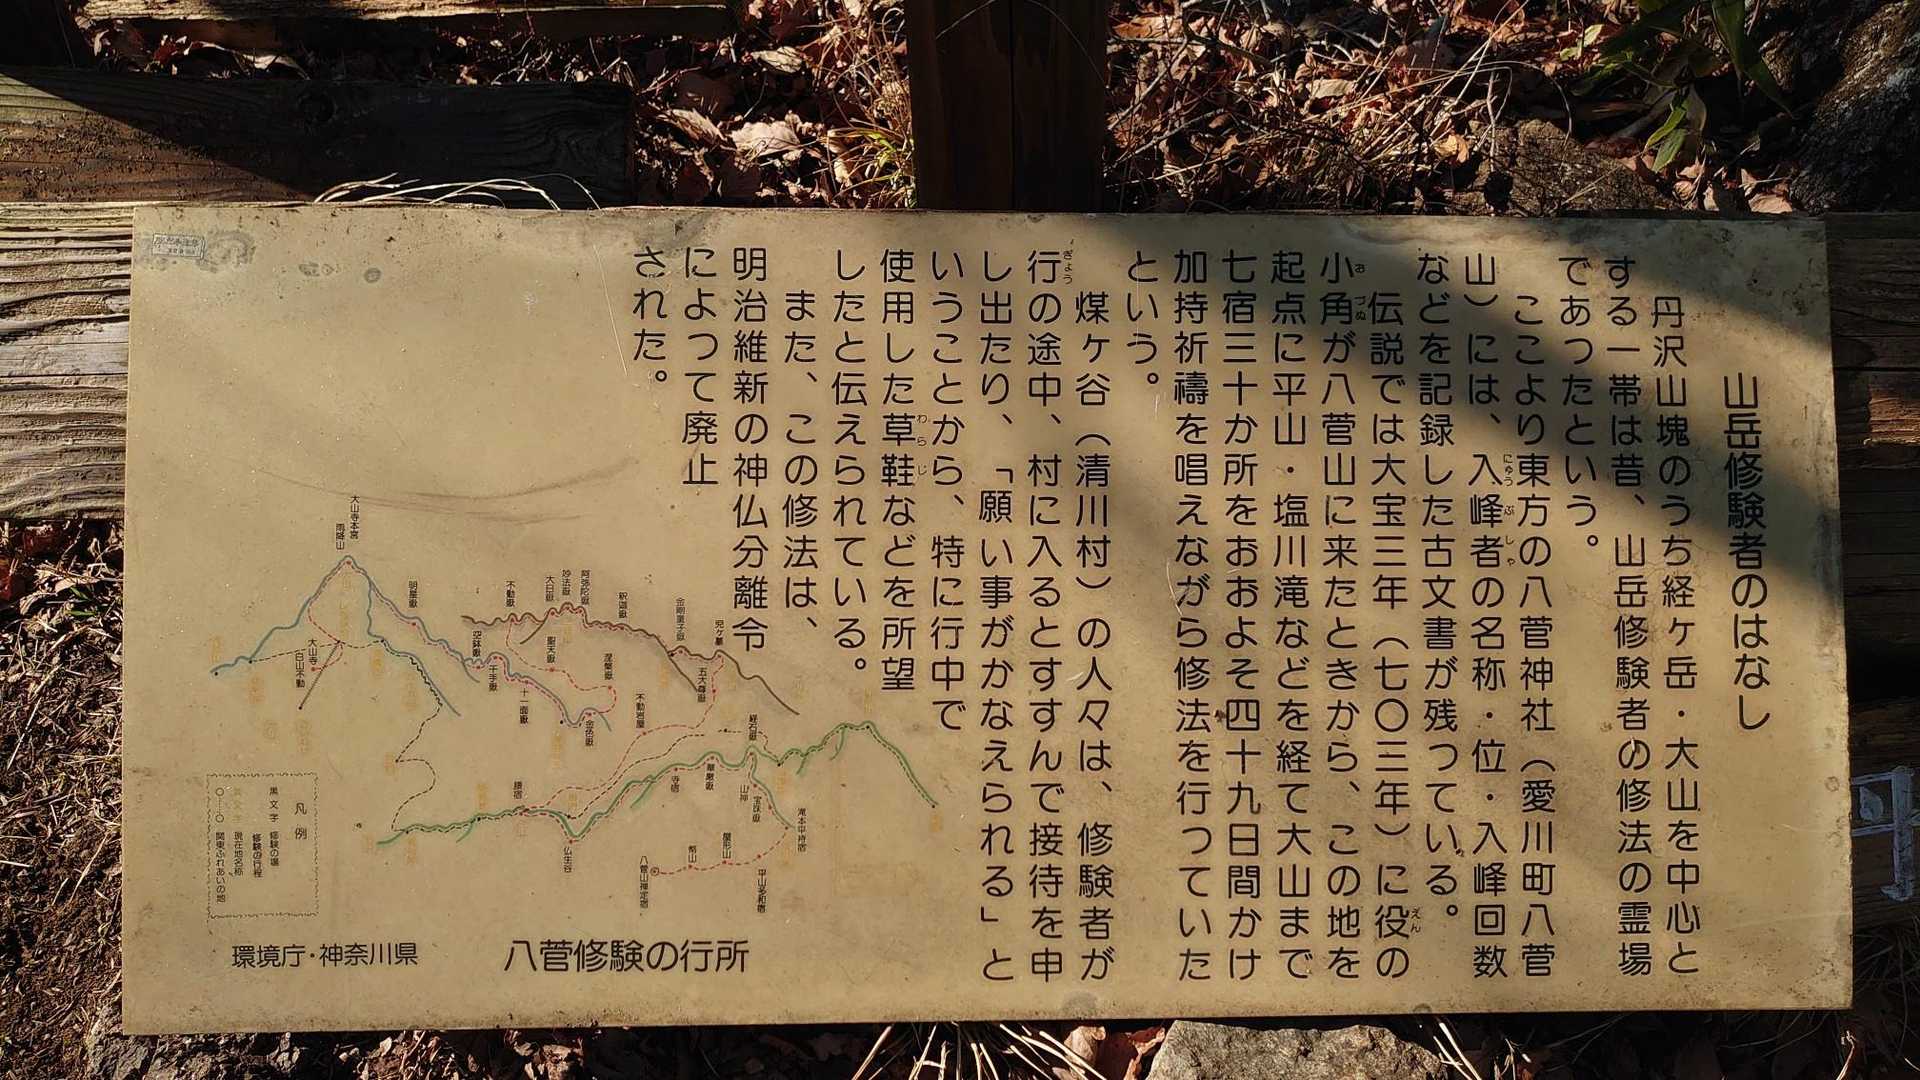 山岳修験者のはなし
丹沢山塊のうち経ケ岳・大山を中心と
する一帯は昔、山岳修験者の修法の霊場
であったという。
ここより東方の八菅神社（愛川町八菅
山）には、入峰者の名称・位・入峰回数
にゅうぶしゃ
などを記録した古文書が残っている。
伝説では大宝三年（七〇三年）に役の
えん
小角が八菅山に来たときから、この地を
おづぬ
起点に平山・塩川滝などを経て大山まで
七宿三十か所をおおよそ四十九日間かけ
加持祈禱を唱えながら修法を行っていた
という。
煤ヶ谷（清川村）の人々は、修験者が
行の途中、村に入るとすすんで接待を申
ぎょう
し出たり、「願い事がかなえられる」と
いうことから、特に行中で
使用した草鞋などを所望
わらじ
したと伝えられている。
また、この修法は、
明治維新の神仏分離令
によって廃止
された。
大山寺本宮
雨降山
明星嶽
大山寺
白山不動
不動嶽
大日嶽
妙法嶽
阿弥陀嶽
釈迦嶽
金剛童子嶽
児ケ墓
空鉢嶽
千手嶽
聖天嶽
涅槃嶽
十一面嶽
金色嶽
不動岩屋
五大尊嶽
経石嶽
華厳嶽
寺宿
山神
宝珠嶽
滝本平持宿
腰宿
仏生谷
八菅山禅定宿
幣山
屋形山
平山多和宿
凡例
黒文字 修験の場
修験の行程
現在地名称
関東ふれあいの地
八菅修験の行所
環境庁・神奈川県